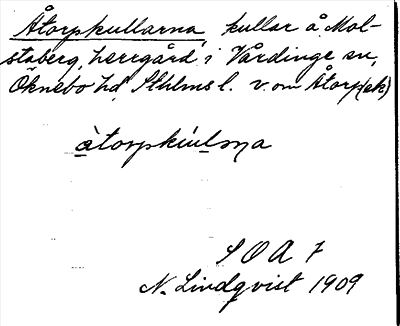 Åtorpkullarna, kullar å Mol-
staberg, herrgård, i Vårdinge sn,
Öknebo hd, Sthlms l. v. om Åtorp(ek)
àtorpkùlạṇa
S O A 7
N. Lindqvist 1909